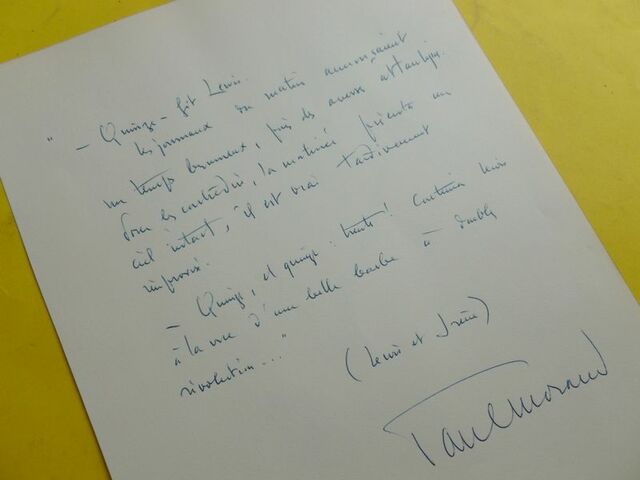 " — Quinze — fit Lewis.
les journaux du matin annonçaient
un temps brumeux, puis des averses atlantiques.
Pour les contredire, la matinée présenta un
ciel intact, il est vrai tardivement
improvisé.
— Quinze, et quinze : trente ! Continua Lewis
à la vue d'une belle barbe à double
révolution... "
(Lewis et Irène)
Paul Morand